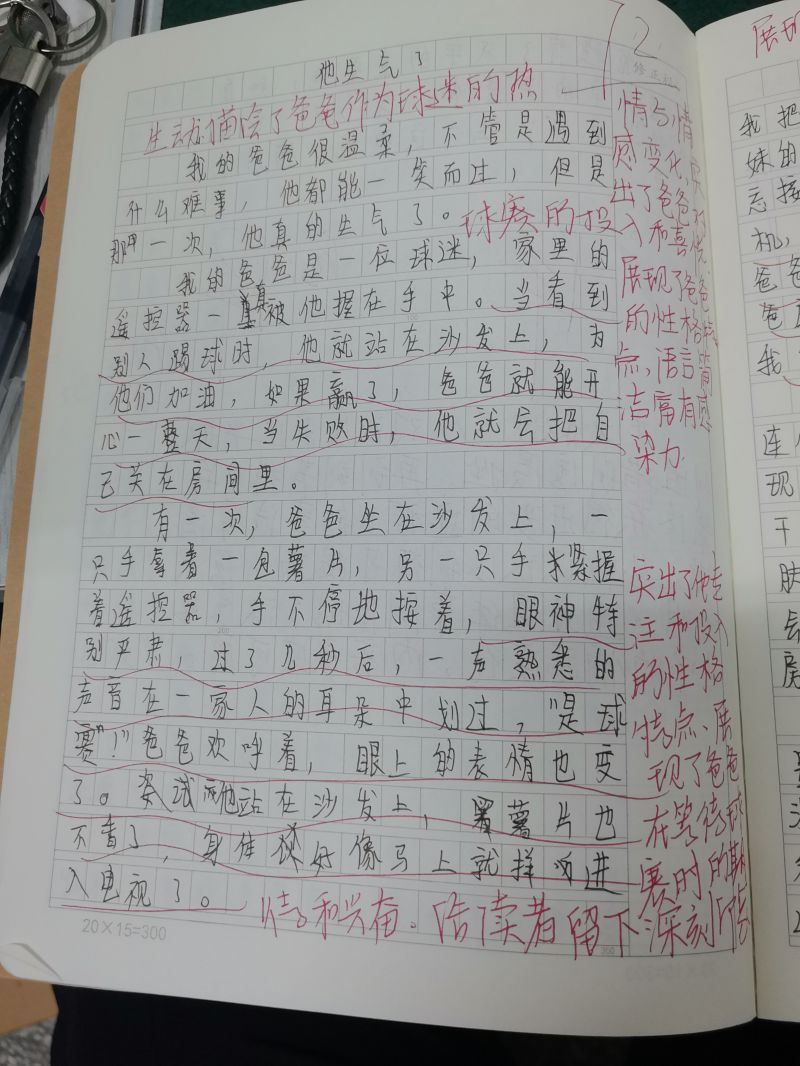 72
修正栏
他生气了
生动描绘了爸爸作为球迷的热
我的爸爸很温柔，不管是遇到
什么难事，他都能一笑而过，但是
那一次，他真的生气了。球赛的投
我的爸爸是一位球迷，家里的
遥控器一直被他握在手中。当看到
别人踢球时，他就站在沙发上，为
他们加油，如果赢了，爸爸就能开
心一整天，当失败时，他就会把自
己关在房间里。
有一次，爸爸坐在沙发上，一
只手拿着一包薯片，另一只手紧握
着遥控器，手不停地按着，眼神特
别严肃，过了几秒后，一声熟悉的
声音在一家人的耳朵中划过，"是球
赛"！爸爸欢呼着，眼上的表情也变
了。他站在沙发上，薯片也
不香了，身体好像马上就择进
入电视了。
情与情
感变化，突
出了爸爸对
入和喜悦
展现了爸爸
的性格特
点，语言简
洁富有感
染力
突出了他专
注和投入
的性格
特点、展
现了爸爸
在等待球
赛时的期
待和兴奋。给读者留下深刻印象
展现
我把
妹的
忘接
机，
爸爸
爸
我
连
现
干
肤
房